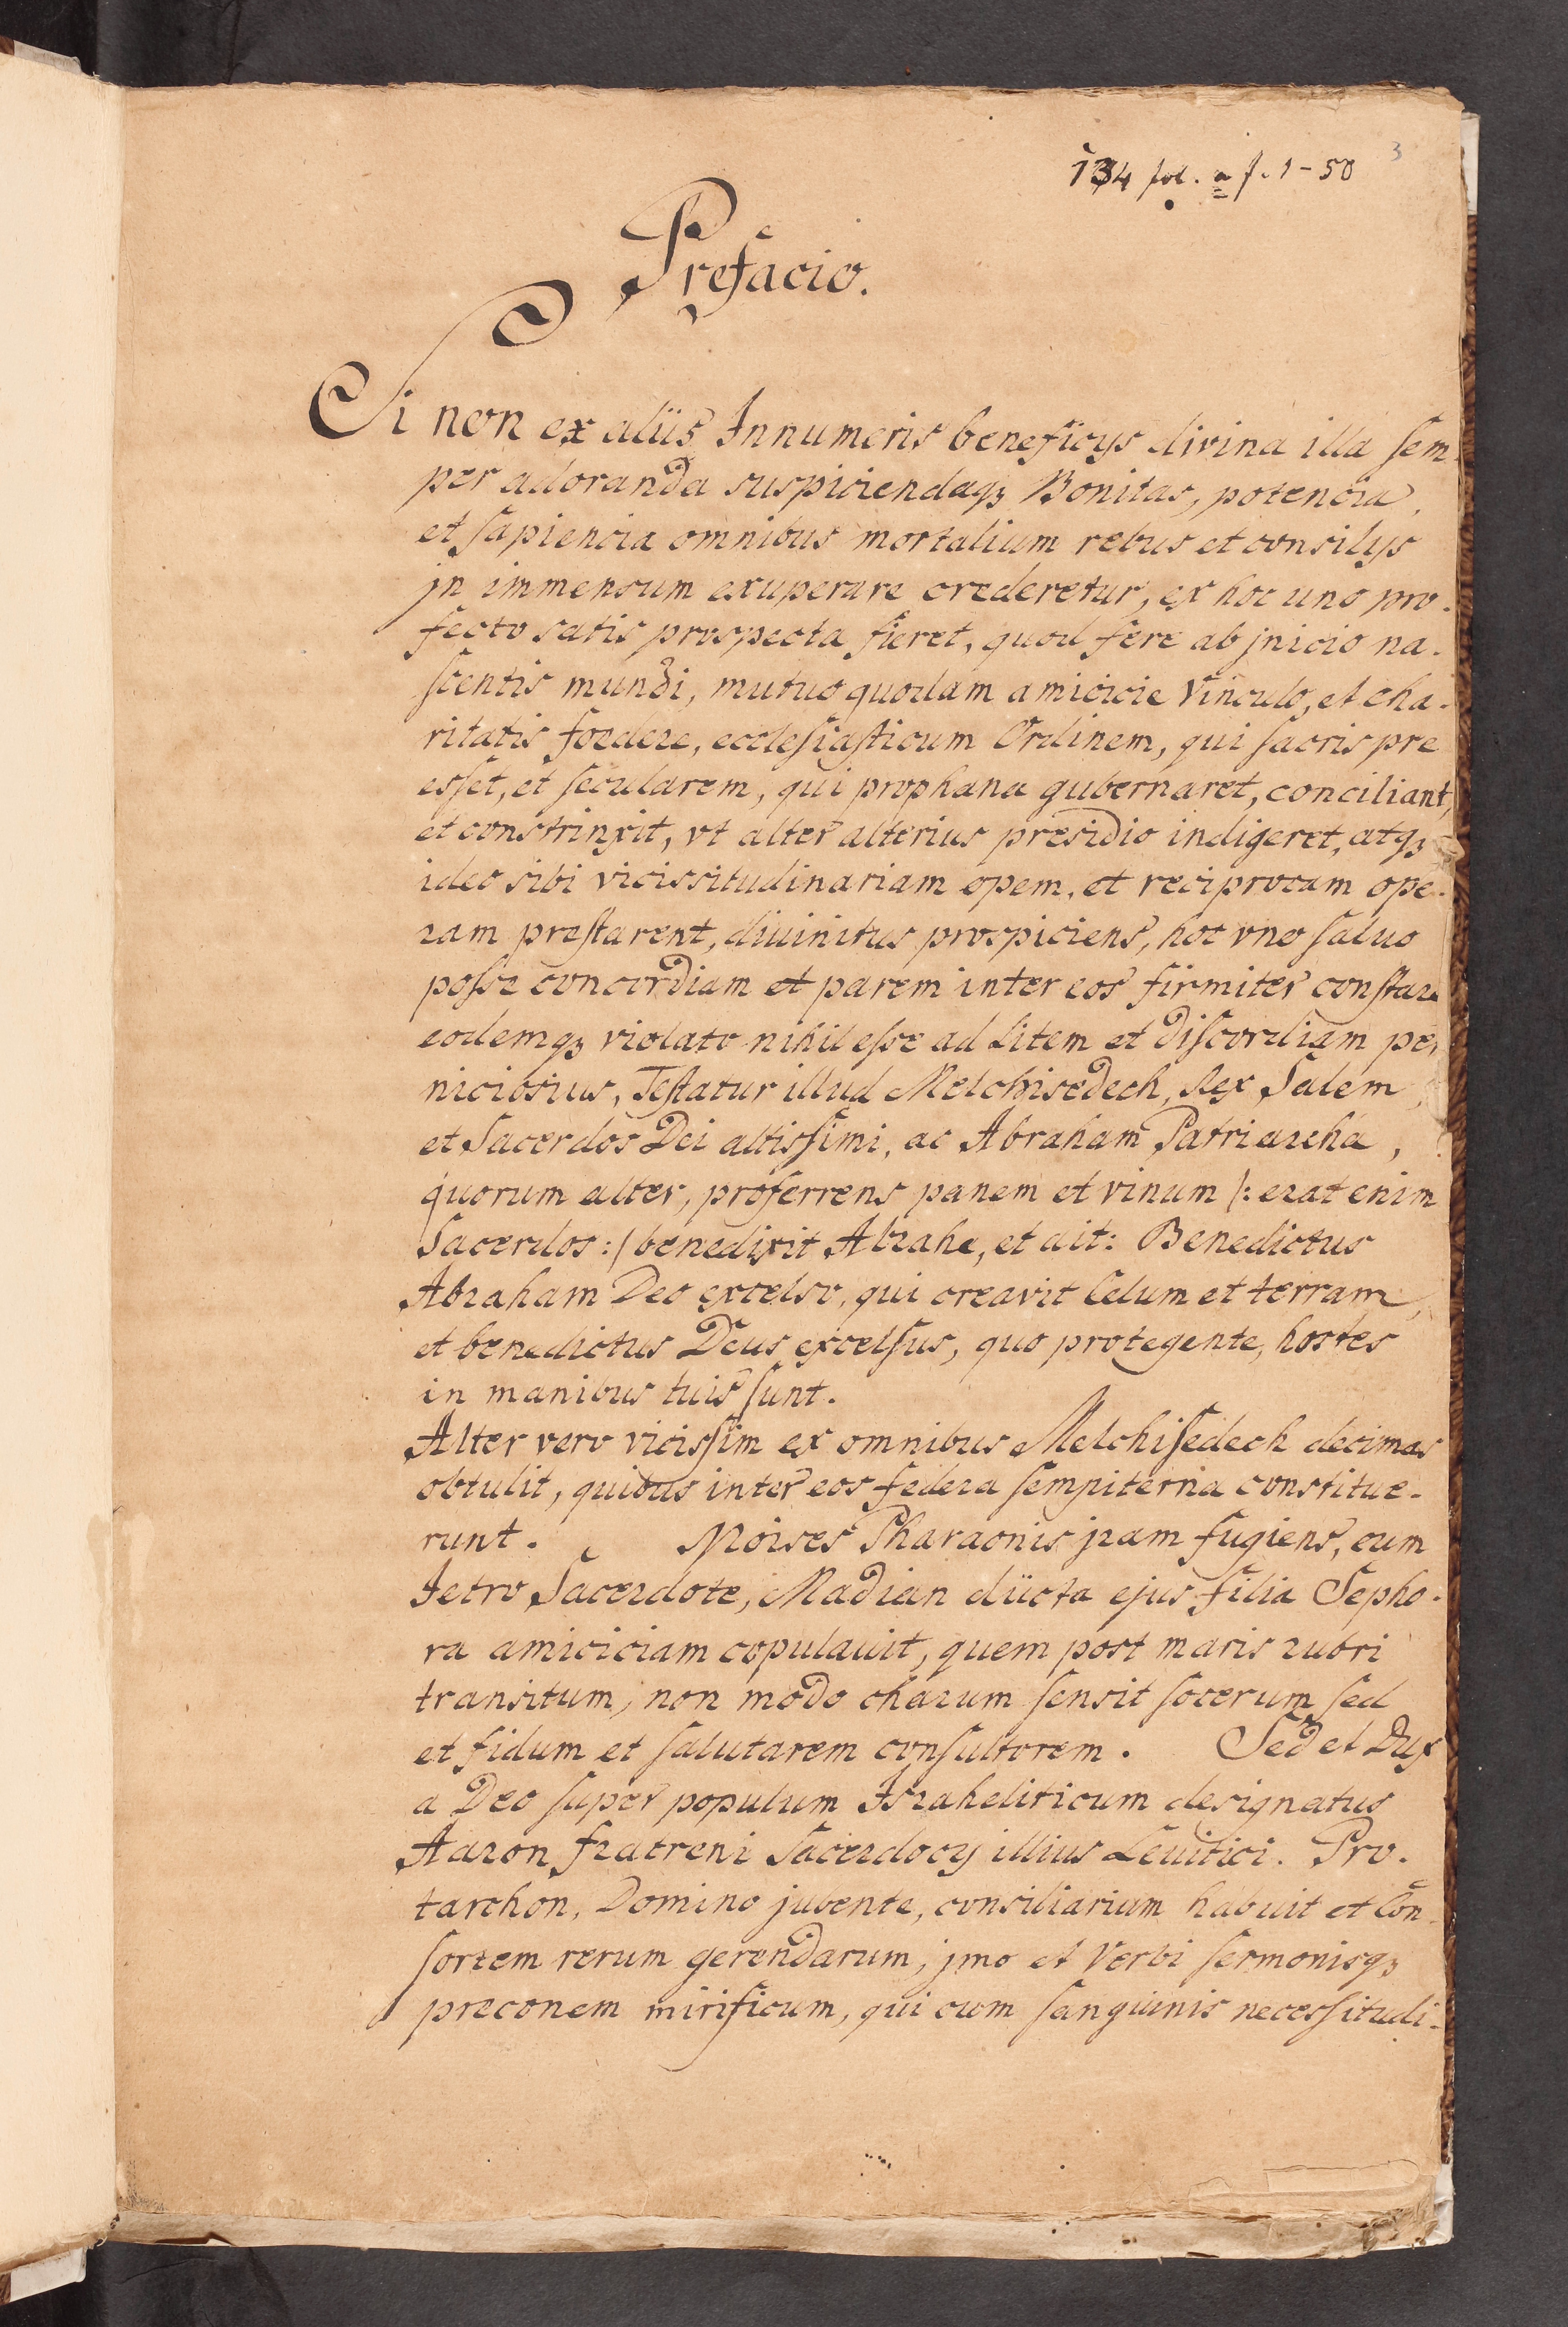 3
134 fol. a f. 1-50
Prefacio.
Si non ex aliis Innumeris beneficys divina illa sem-
per adoranda suspiciendaqꝫ Bonitas, potencia,
et sapiencia omnibus mortalium rebus et consilys
jn immensum exuperare crederetur, ex hoc uno pro-
fecto satis prospecta fieret, quod fere ab jnicio na-
scentis mundi, mutuo quodam amicicie vinculo, et cha-
ritatis foedere, ecclesiasticum Ordinem, qui sacris pre
esset, et secularem, qui prophana gubernaret, conciliant,
et constrinxit, vt alter alterius presidio indigeret, atqꝫ
ideo sibi vicissitudinariam opem, et reciprocam ope-
ram prestarent, diuinitus prospiciens, hoc vno saluo
posse concordiam et parem inter eos firmiter constare
eodemqꝫ violato nihil esse ad Litem et discordiam per
niciosius, Testatur illud Melchisedech, Rex Salem,
et Sacerdos Dei altissimi, ac Abraham Patriarcha,
quorum alter, proferrens panem et vinum /: erat enim
Sacerdos :/ benedixit Abrahe, et ait: Benedictus
Abraham Deo excelso, qui creavit Celum et terram,
et benedictus Deus excelsus, quo protegente, hostes
in manibus tuis sunt.
Alter vero vicissim ex omnibus Melchisedech decimas
obtulit, quibus inter eos federa sempiterna constitue-
runt. Moises Pharaonis jram fugiens, cum
Jetro Sacerdote, Madian ducta ejus filia Sepho-
ra amiciciam copulauit, quem post maris rubri
transitum, non modo charum sensit socerum sed
et fidum et salutarem consultorem. Sed et Dux
a Deo super populum Israheliticum designatus
Aaron fratrem Sacerdocy illius Leuitici. Pro-
tarchon, Domino jubente, consiliarium habuit et Con-
sortem rerum gerendarum, jmo et Verbi sermonisqꝫ
preconem mirificum, qui cum sanguinis necessitudi-